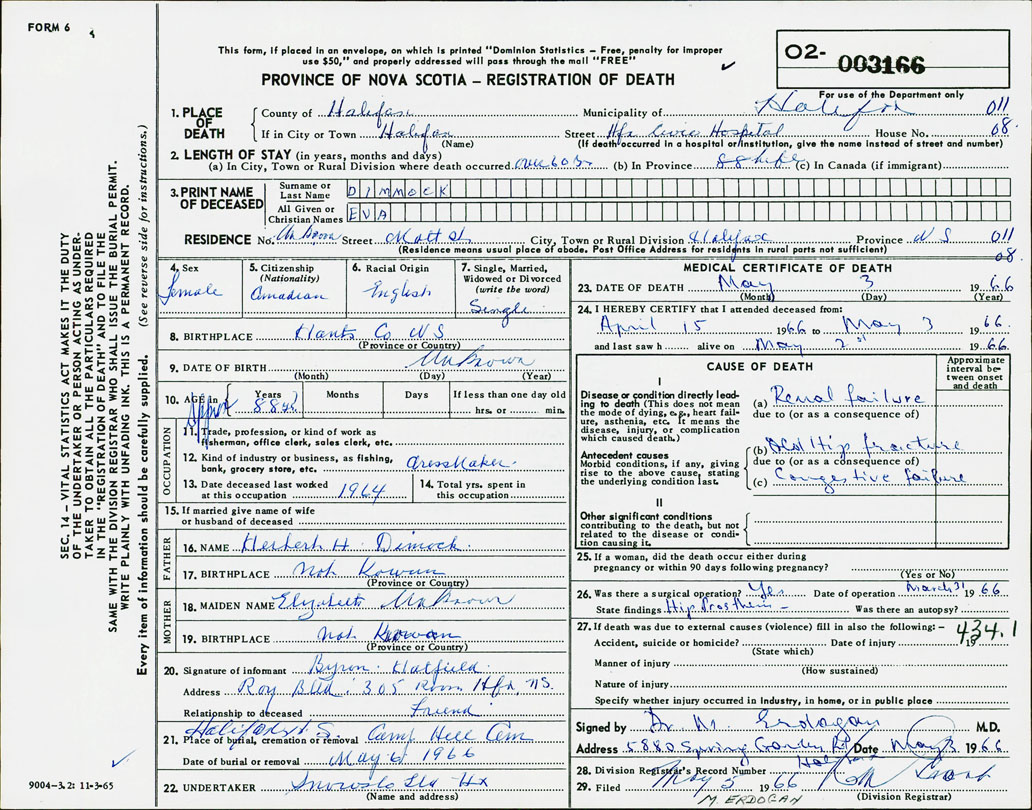 FORM 6
This form, if placed in an envelope, on which is printed "Dominion Statistics — Free, penalty for improper
use $50," and properly addressed will pass through the mail "FREE"
PROVINCE OF NOVA SCOTIA — REGISTRATION OF DEATH
O2- 003166
For use of the Department only
1. PLACE OF DEATH
County of Halifax Municipality of Halifax 011
If in City or Town Halifax Street Hfx Civic Hospital House No. 08
(Name) (If death occurred in a hospital or institution, give the name instead of street and number)
2. LENGTH OF STAY (in years, months and days)
(a) In City, Town or Rural Division where death occurred over 60 yrs (b) In Province 88 (c) In Canada (if immigrant)
3. PRINT NAME OF DECEASED
Surname or Last Name DIMMOCK
All Given or Christian Names EVA
RESIDENCE No. Unknown Street Matt St. City, Town or Rural Division Halifax Province N S 011
(Residence means usual place of abode. Post Office Address for residents in rural parts not sufficient) 08
4. Sex Female
5. Citizenship (Nationality) Canadian
6. Racial Origin English
7. Single, Married, Widowed or Divorced (write the word) Single
8. BIRTHPLACE Hants Co N.S
(Province or Country)
9. DATE OF BIRTH Unknown
(Month) (Day) (Year)
10. AGE in Approx Years 88 yrs Months Days If less than one day old
hrs. or min.
OCCUPATION
11. Trade, profession, or kind of work as
fisherman, office clerk, sales clerk, etc.
12. Kind of industry or business, as fishing,
bank, grocery store, etc. dressmaker
13. Date deceased last worked
at this occupation 1964
14. Total yrs. spent in
this occupation
15. If married give name of wife
or husband of deceased
FATHER
16. NAME Herbert H. Dimock
17. BIRTHPLACE Not Kowan
(Province or Country)
MOTHER
18. MAIDEN NAME Elizabeth Unknown
19. BIRTHPLACE not Kowan
(Province or Country)
20. Signature of informant Byron Hatfield
Address Roy Bld. 305 Room Hfx, N.S.
Relationship to deceased Friend
Halifax N.S.
21. Place of burial, cremation or removal Camp Hill Cem
Date of burial or removal May 6 1966
22. UNDERTAKER Snows Ltd Hx
(Name and address)
MEDICAL CERTIFICATE OF DEATH
23. DATE OF DEATH May 3 1966
(Month) (Day) (Year)
24. I HEREBY CERTIFY that I attended deceased from:
April 15 1966 to May 3 1966
and last saw h alive on May 2 1966
CAUSE OF DEATH
Approximate interval between onset and death
I
Disease or condition directly leading to death (This does not mean the mode of dying, e.g., heart failure, asthenia, etc. It means the disease, injury, or complication which caused death.)
(a) Renal failure
due to (or as a consequence of)
Antecedent causes
Morbid conditions, if any, giving rise to the above cause, stating the underlying condition last.
(b) Old Hip fracture
due to (or as a consequence of)
(c) Congestive failure
II
Other significant conditions
contributing to the death, but not
related to the disease or condition causing it.
25. If a woman, did the death occur either during
pregnancy or within 90 days following pregnancy?
(Yes or No)
26. Was there a surgical operation? Yes Date of operation March 31 1966
State findings Hip Prosthesis Was there an autopsy?
27. If death was due to external causes (violence) fill in also the following: — 434.1
Accident, suicide or homicide? Date of injury 19
(State which)
Manner of injury
(How sustained)
Nature of injury
Specify whether injury occurred in Industry, in home, or in public place
Signed by Dr. M. Erdogan M.D.
Address 5880 Spring Garden Rd Date May 3 1966
Halifax
28. Division Registrar's Record Number
29. Filed May 5 1966
(Division Registrar)
M. ERDOGAN
SEC. 14 — VITAL STATISTICS ACT MAKES IT THE DUTY
OF THE UNDERTAKER OR PERSON ACTING AS UNDER-
TAKER TO OBTAIN ALL THE PARTICULARS REQUIRED
IN THE "REGISTRATION OF DEATH" AND TO FILE THE
SAME WITH THE DIVISION REGISTRAR WHO SHALL ISSUE THE BURIAL PERMIT.
WRITE PLAINLY WITH UNFADING INK. THIS IS A PERMANENT RECORD.
Every item of information should be carefully supplied. (See reverse side for instructions.)
9004-3.2: 11-3-65